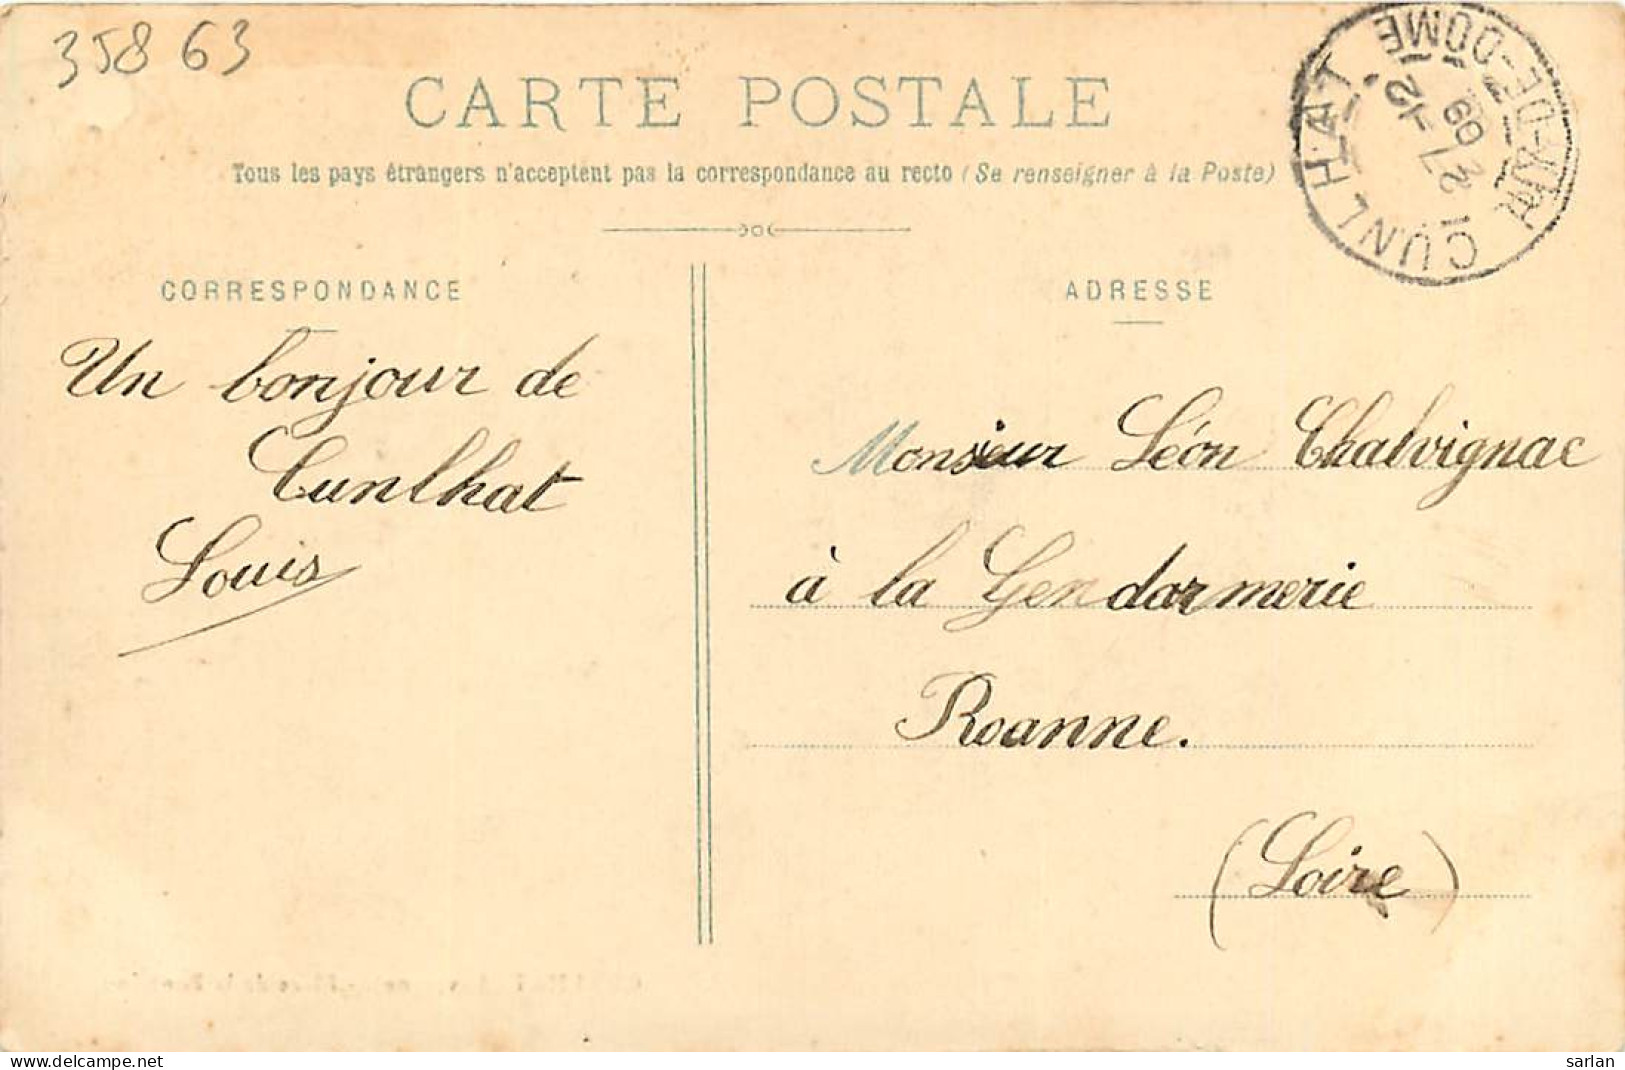 358 63
CARTE POSTALE
Tous les pays étrangers n'acceptent pas la correspondance au recto (Se renseigner à la Poste)
CUNLHAT
PUY-DE-DOME
12
27
09
CORRESPONDANCE
Un bonjour de
Cunlhat
Louis
ADRESSE
Monsieur Léon Chalvignac
à la Gendarmerie
Roanne.
(Loire)
www.delcampe.net
sarlan